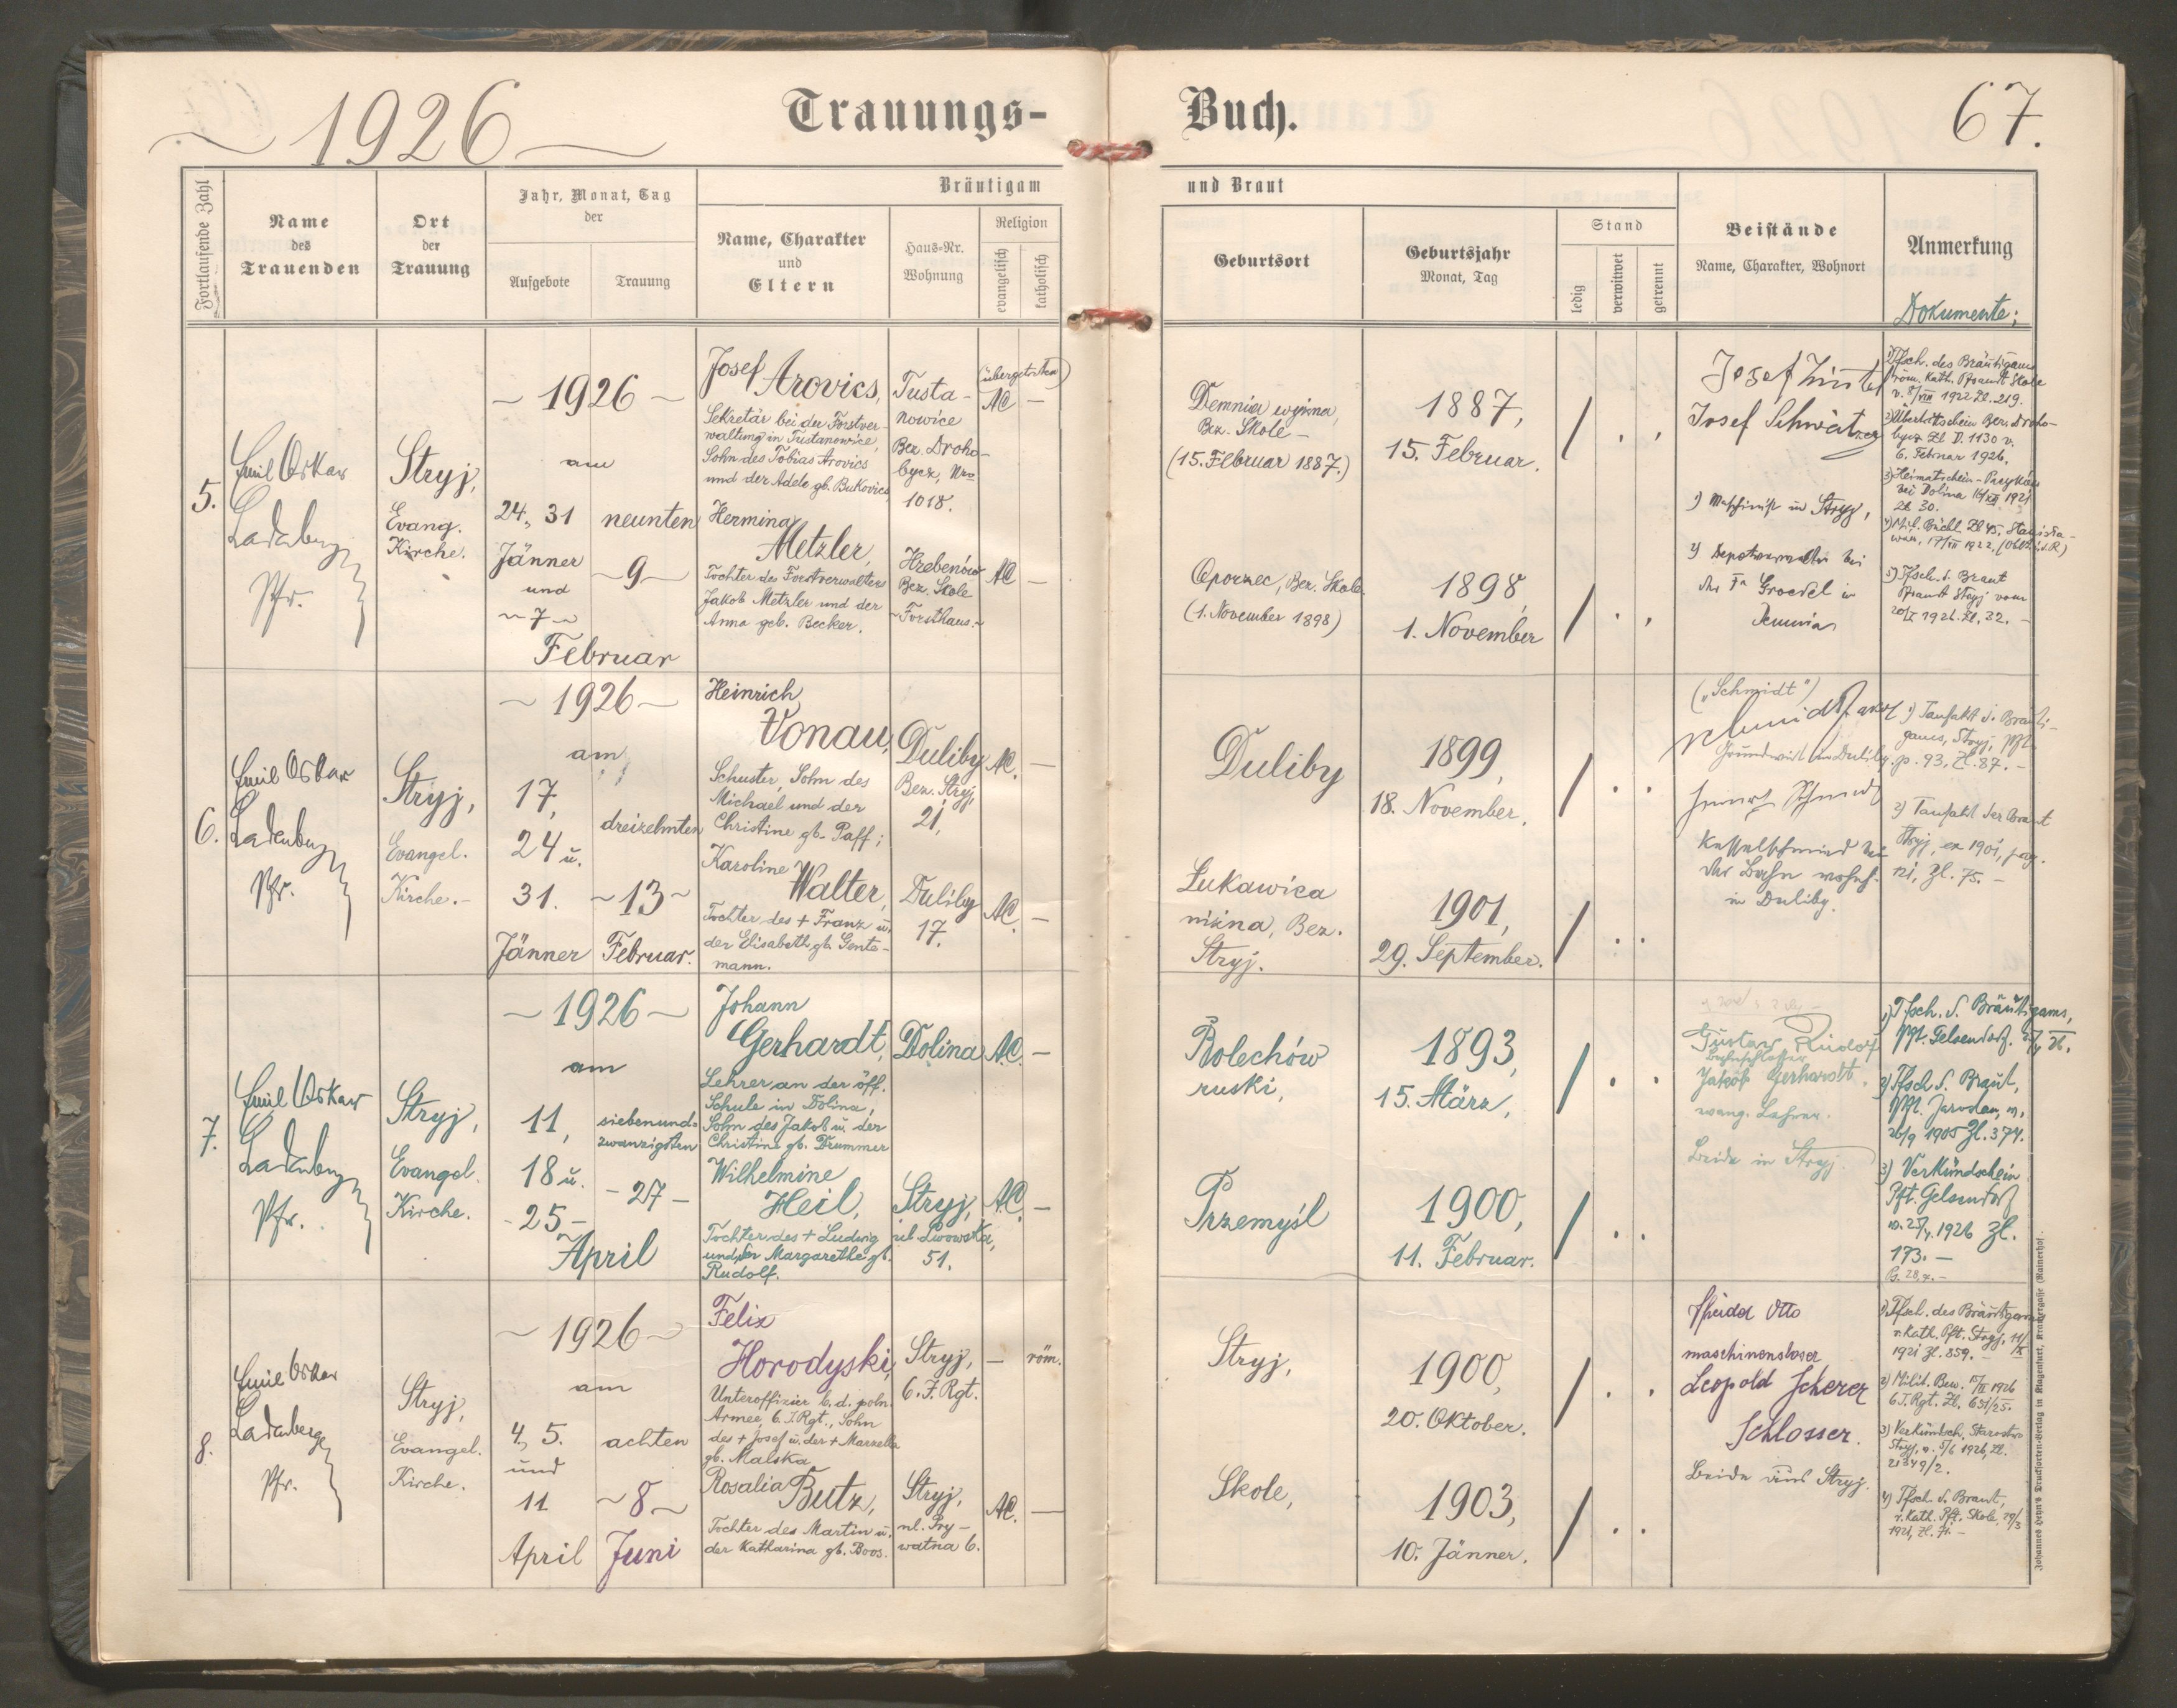 1926
Trauungs-
Buch.
67.
Fortlaufende Zahl
Name
des
Trauenden
Ort
der
Trauung
Jahr, Monat, Tag
der
Aufgebote
Trauung
Bräutigam
Name, Charakter
und
Eltern
Haus-Nr.
Wohnung
Religion
evangelisch
katholisch
und Braut
Geburtsort
Geburtsjahr
Monat, Tag
Stand
ledig
verwitwet
getrennt
Beistände
Name, Charakter, Wohnort
Anmerkung
Dokumente:
5.
Emil Oskar
Ladenberger
Pfr.
Stryj,
Evang.
Kirche.
~ 1926 ~
am
24., 31
Jänner
und
~ 7 ~
Februar
neunten
~ 9 ~
Josef
Arovics,
Sekretär bei der Forstver-
waltung in Tustanowice,
Sohn des Tobias Arovics
und der Adele gb. Bukovics
Tusta-
nowice
Bez. Droho-
bycz, Nro
1018.
(übergetreten)
AC —
Hermina
Metzler,
Tochter des Forstverwalters
Jakob Metzler und der
Anna geb. Becker.
Hrebenów
Bez. Skole
~ Forsthaus. ~
AC —
Demnia wyżna,
Bez. Skole —
(15. Februar 1887.)
1887,
15. Februar.
Oporzec, Bez. Skole.
(1. November 1898)
1898,
1. November
Josef
Josef Schwätzer
1) Maschinist in Stryj,
2) Depotverwalter bei
der Fa Groedel in
Demnia
1) Tfsch. des Bräutigams
röm. kath. Pframt Skole
v. 8/VIII 1922 Zl. 219.
2) Übertrittschein Bez. Droho-
bycz Zl D. 1130 v.
6. Februar 1926.
3) Heimatschein -
bei Dolina 16/XII 1921
Zl 30.
4) Mil. Büchl. Zl 45, Stanisła-
wów, 17/VII 1922.
5) Tfsch. d. Braut
Pframt Stryj vom
20/I 1926. Zl. 32. —
6.
Emil Oskar
Ladenberger
Pfr.
Stryj,
Evangel.
Kirche. —
~ 1926 ~
am
17,
24 u.
31.
Jänner
dreizehnten
~ 13 ~
Februar.
Heinrich
Vonau,
Schuster, Sohn des
Michael und der
Christine gb. Paff;
Duliby
Bez. Stryj,
21,
AC. —
Karoline
Walter,
Tochter des + Franz u.
der Elisabeth gb. Gente-
mann.
Duliby
17.
AC. —
Duliby
1899,
18. November.
Lukawica
niżna, Bez.
Stryj.
1901,
29. September.
("Schmidt")
Schmidt Jakob
Grundwirt in Duliby.
Heinrich Schmidt
Kesselschmied bei
der Bahn wohnh.
in Duliby.
1) Taufakt d. Bräuti-
gams, Stryj,
p. 93, Zl. 87. —
2) Taufakt der Braut
Stryj, ex 1901, pag.
Zl. 75. —
7.
Emil Oskar
Ladenberger
Pfr.
Stryj,
Evangel.
Kirche.
~ 1926 ~
am
11,
18 u.
- 25 -
April
siebenund-
zwanzigsten
- 27 -
Johann
Gerhardt,
Lehrer an der öff.
Schule in Dolina,
Sohn des Jakob u. der
Christine gb. Drummer
Dolina
AC. —
Wilhelmine
Heil,
Tochter des + Ludwig
und der Margarethe gb.
Rudolf.
Stryj,
ul. Lwowska,
51.
AC. —
Bolechów
ruski,
1893,
15. März,
Przemyśl
1900,
11. Februar.
Gustav Rudolf
Jakob Gerhardt,
evang. Lehrer.
Beide in Stryj.
1) Tfsch. d. Bräutigams,
Pft. Gelsendorf.
2) Tfsch d. Braut,
Pft. Jaroslau, v.
26/9 1905 Zl. 374.
3) Verkündschein
Pft. Gelsendorf
v. 25/4. 1926 Zl.
173. —
8.
Emil Oskar
Ladenberger
Pfr.
Stryj,
Evangel.
Kirche.
~ 1926 ~
am
4., 5.
und
11
April
achten
~ 8 ~
Juni
Felix
Horodyski,
Unteroffizier b. d. poln.
Armee, 6. I. Rgt., Sohn
des + Josef u. der + Marzella
gb. Malska
Stryj,
6. I. Rgt.
— röm.
Rosalia
Butz,
Tochter des Martin u.
der Katharina gb. Boos.
Stryj,
ul. Pry-
watna 6.
AC. —
Stryj,
1900,
20. Oktober.
Skole,
1903,
10. Jänner.
Otto
maschinenschloser
Leopold Scherer
Schlosser.
Beide aus Stryj.
1) Tfsch. des Bräutigams
r. kath. Pft. Stryj, 11/IX
1921 Zl. 859. —
2) Milit. Bew. 15/II 1926
6. I. Rgt. Zl. 631/25.
3) Verkündsch. Starostwo
Stryj, v. 5/6 1926, Zl.
21349/2.
4) Tfsch. d. Braut,
r. kath. Pft. Skole, 29/3
1921, Zl. 71. —
Johannes Heyn's Drucksorten-Verlag in Klagenfurt, Kramergasse (Rainerhof).